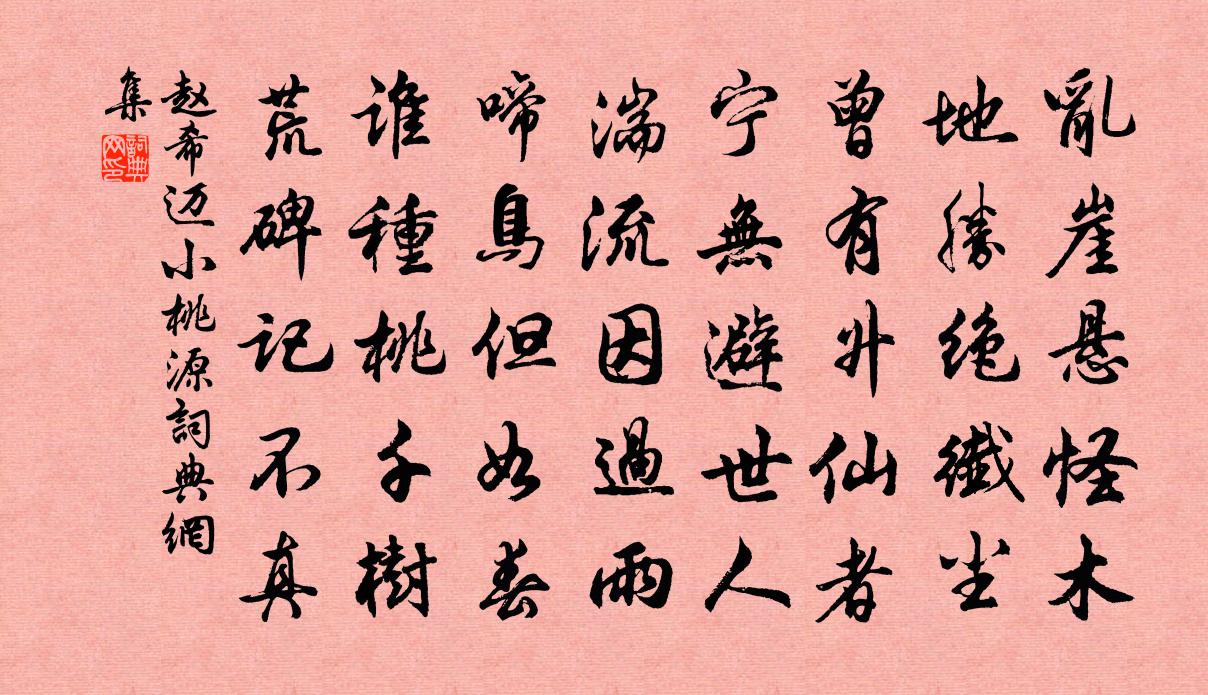 亂崖悬怪木
地勝绝纖尘
曾有外仙者
宁無避世人
湍流因過雨
啼鳥但如春
谁種桃千樹
荒碑记不真
赵希迈小桃源詞典網
集
詞典網印